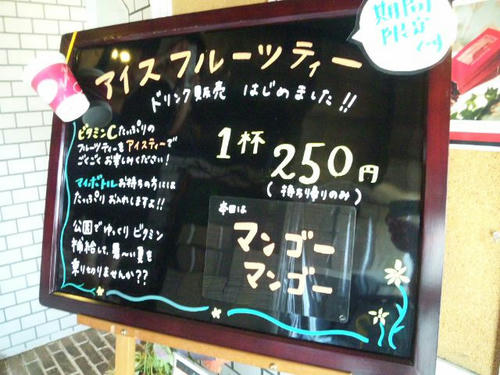 期間
限定
です
アイスフルーツティー
ドリンク販売 はじめました!!
ビタミンCたっぷりの
フルーツティーをアイスティーで
ごくごくお楽しみください!
マイボトルお持ちの方には
たっぷりお入れしますよ!!
公園でゆっくりビタミン
補給して、暑~い夏を
乗り切りませんか??
1杯
250円
(持ち帰りのみ)
本日は
マンゴー
マンゴー